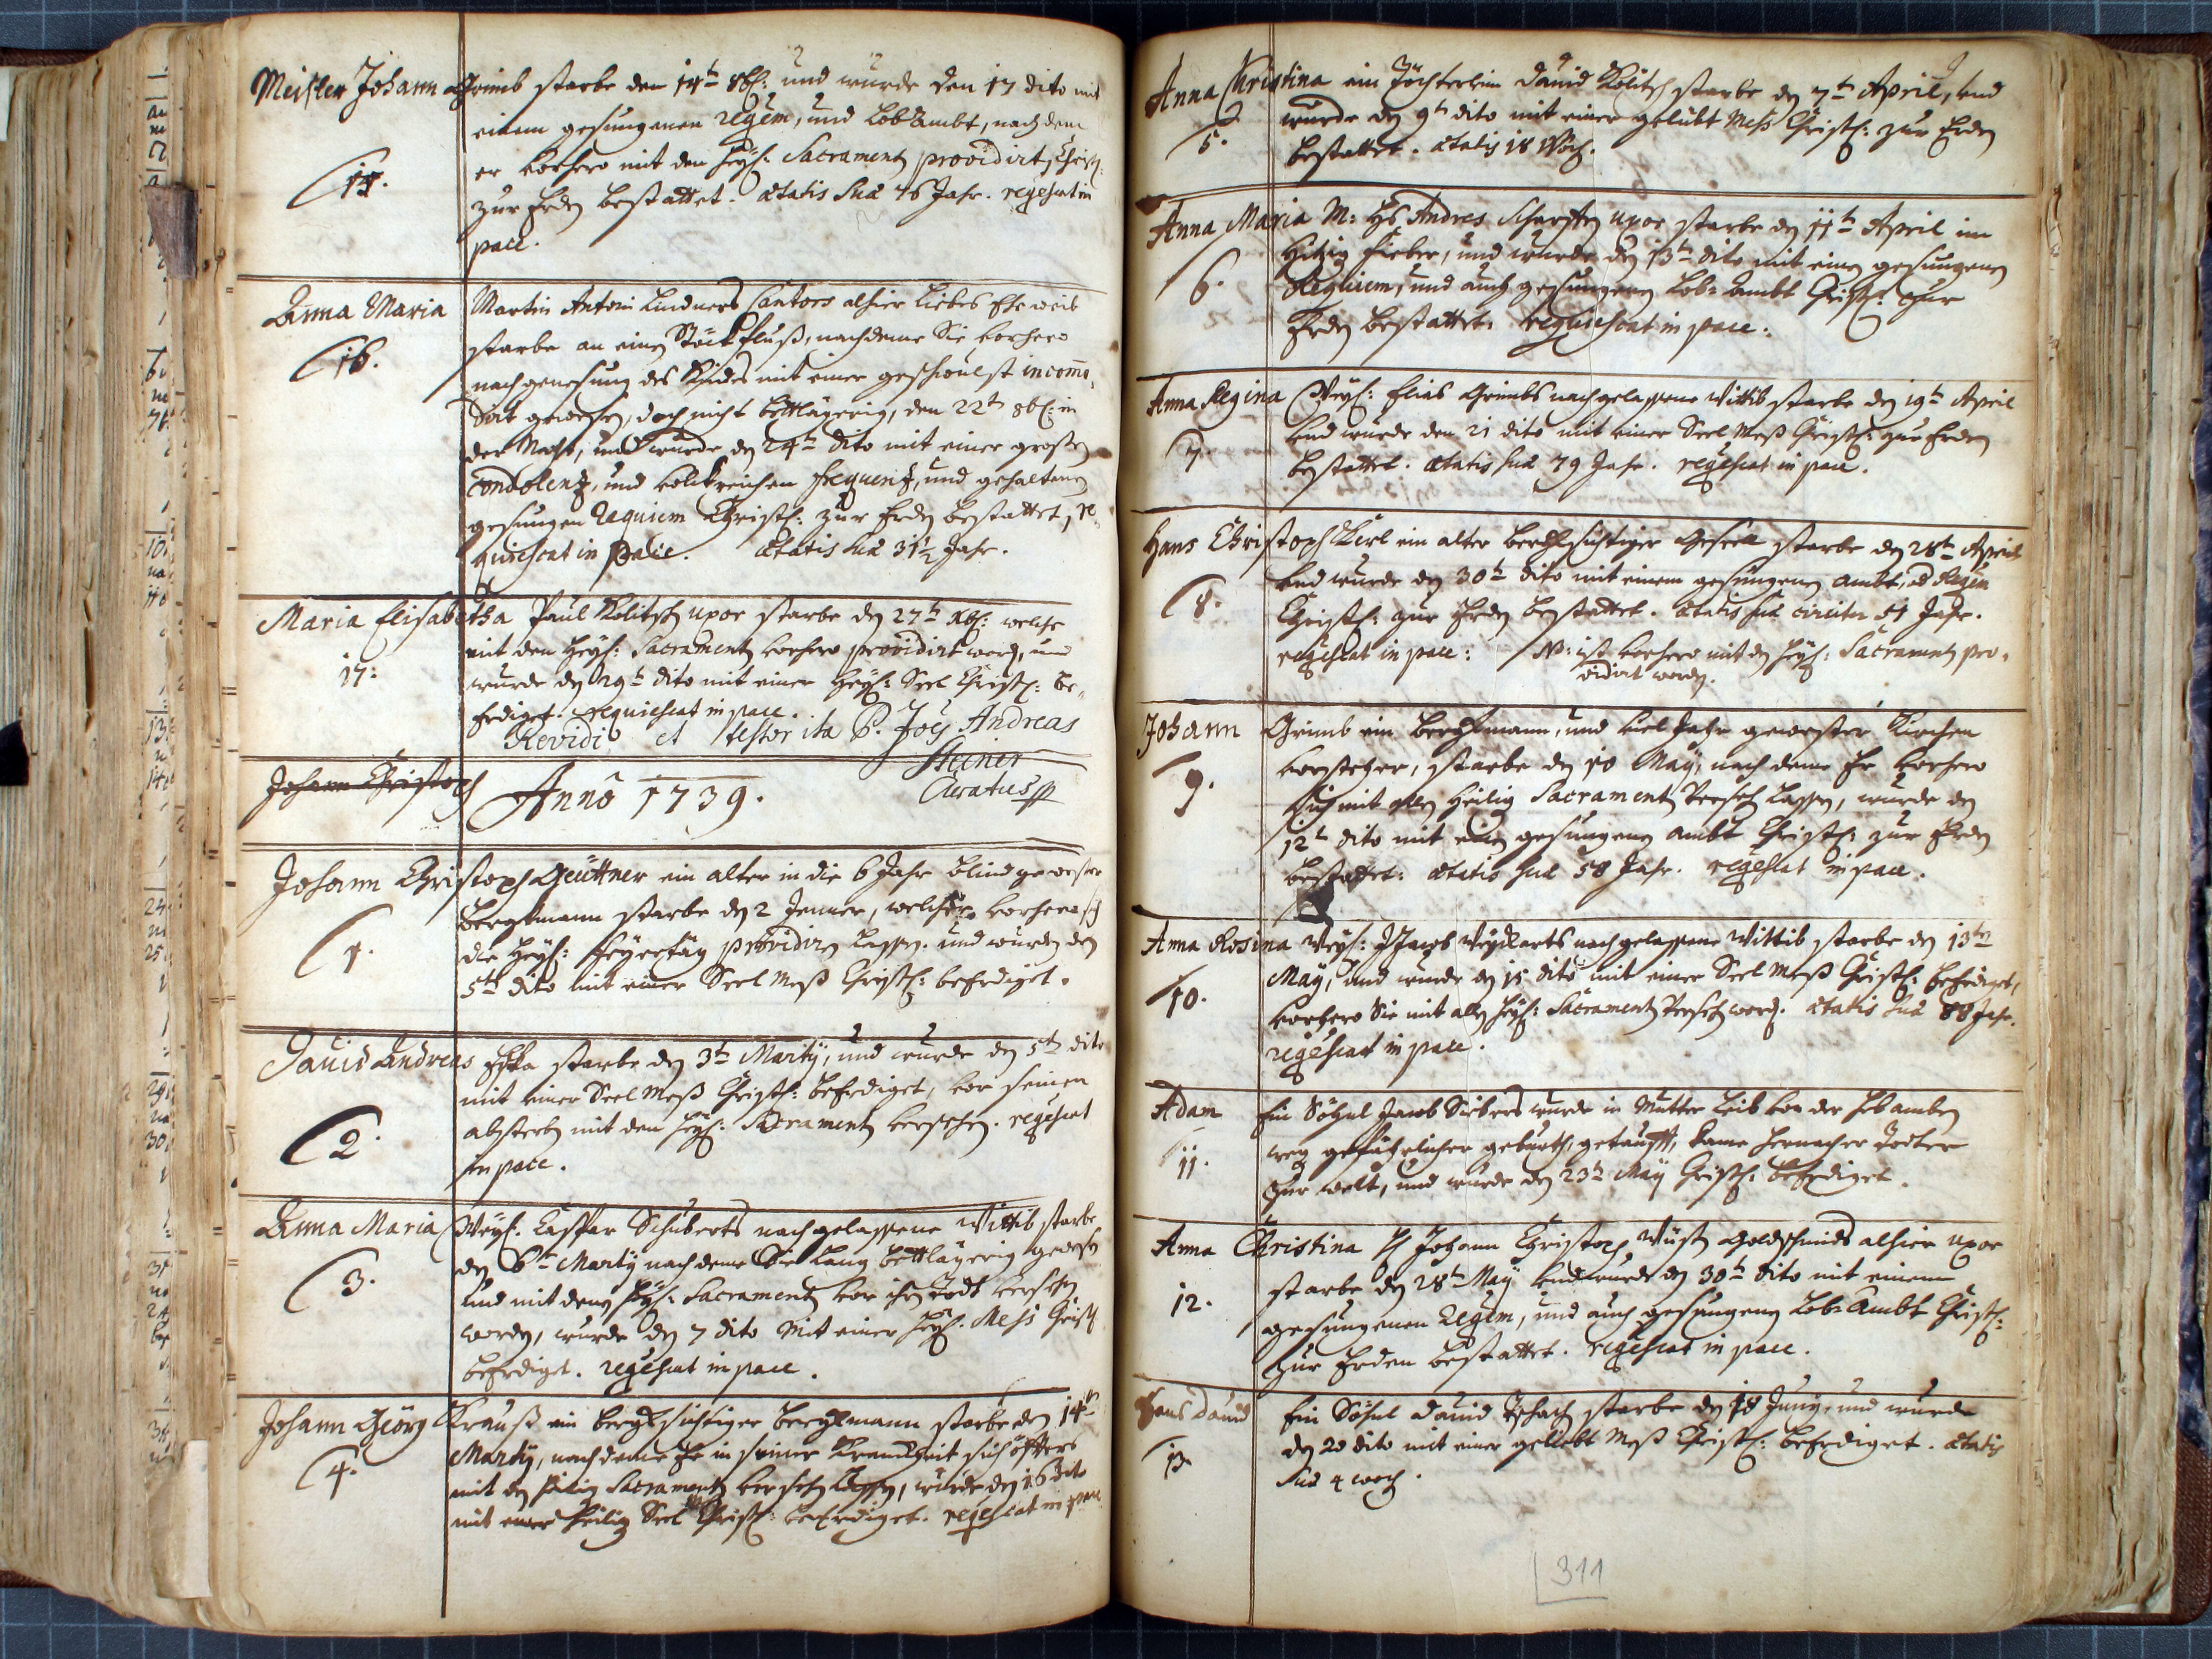 Meister Johann Grimb starbe den 14t 8br: und wurde den 17 dito mit
einem gesungenen requem, und Lobambt, nach dem
er vorhero mit den Heyl: Sacramenten providirt, Christl:
15.
zur Erden bestattet. ætatis suæ 76 Jahr. requiescat in
pace.
Anna Maria Martin Antoni Lindners Cantors alhier liebes Eheweib
16.
starbe an einen Stöckfluß, nachdeme Sie vorhero
nach genesung des Kindes mit einer geschwulst incomo-
dirt gewesen, doch nicht bettlägerig, den 22t 8br: in
der Nacht, und wurde den 24t dito mit einer großen
condolentz, und volckreichen frequentz, und gehaltenen
gesungen requiem Christl: zur Erden bestattet, re-
quiescat in pace. ætatis suæ 31½ Jahr.
Maria Elisabetha Paul Kolitsch uxor starbe den 27t Xbr: welche
mit den Heyl: Sacramenten vorhero providirt worden, und
17:
wurde den 29t dito mit einer Heyl: Seel Christl: be-
erdiget. requiescat in pace.
Revidi et testor ita P. Joes Andreas
Steiner
Curatus
Johann Christoph
Anno 1739.
Johann Christoph Geüttner ein alter in die 6 Jahr blind gewester
Bergkmann starbe den 2 Jenner, welcher vorhero
1.
die Heyl: feyertäg providiren lassen. und wurde den
5t dito mit einer Seel Meß Christl: beerdiget.
David Andreas starbe den 3t Martij, und wurde den 5t dito
mit einer Seel Meß Christl: beerdiget, vor seinen
2.
absterben mit den Heyl: Sacramenten versehen. requiescat
in pace.
Anna Maria Weyl: Caspar Schuberts nachgelassene Wittib starbe
den 6t Martij nach deme Sie lang bettlägerig gewesen
3.
und mit denen Heyl: Sacramenten vor ihren Todt versehen
worden, wurde den 7 dito mit einer Heyl: Mess Christl:
beerdiget. requiescat in pace.
Johann Georg Krauß ein bergksüchtiger Bergkmann starbe den 14t
4.
Martij, nach deme Er in seiner Kranckheit sich öffters
mit den Heilig Sacramenten versehen lassen, wurde den 16 dito
mit einer Heilig Seel Christl: beerdiget. requiescat in pace
Anna Christina ein Töchterlein David Kolitsch starbe den 7t April, und
5.
wurde den 9t dito mit einer gelübt Mess Christl: zur Erden
bestattet. ætatis 18 Woch.
Anna Maria M: Hs Andres uxor starbe den 11t April im
6.
Hitzig Fieber, und wurde den 13t dito mit einen gesungenen
Requiem, und auch gesungenen Lob-Ambt Christl: zur
Erden bestattet. requiescat in pace.
Anna Regina Weyl: Elias Grimbs nachgelassene Wittib starbe den 19t April
7.
und wurde den 21 dito mit einer Seel Meß Christl: zur Erden
bestattet. ætatis suæ 79 Jahr. requiescat in pace.
Hans Christoph Kerl ein alter bergksüchtiger Gesell starbe den 28t April
8.
und wurde den 30t dito mit einem gesungenen Ambt, ad Requiem
Christl: zur Erden bestattet. ætatis suæ circiter 51 Jahr.
requiescat in pace: N: ist vorhero mit den Heyl: Sacramenten pro-
vidirt worden.
Johann Grimb ein Bergkmann, und viel Jahr gewester Kirchen
9.
vorsteher, starbe den 10 May, nach deme Er vorhero
sich mit allen Heilig Sacramenten versehen lassen, wurde den
12t dito mit einen gesungenen Ambt Christl: zur Erden
bestattet: ætatis suæ 58 Jahr. requiescat in pace.
Anna Rosina Weyl: Jacob nachgelassene Wittib starbe den 13ten
10.
May, und wurde den 15 dito mit einer Seel Meß Christl: beerdiget,
vorhero Sie mit allen Heyl: Sacramenten versehen worden. ætatis suæ 88 Jahr.
requiescat in pace.
Adam Ein Söhnl Jacob Siebers wurde in Mutter Leib von der Hebamben
11.
weg gefährlicher geburth, getaufft, kame hernacher Todter
zur welt, und wurde den 23t May Christl: beerdiget.
Anna Christina Johann Christoph Wüsten Goldschmids alhier uxor
12.
starbe den 28t May und wurde den 30t dito mit einem
gesungenen Requiem, und auch gesungenen Lob-Ambt Christl:
zur Erden bestattet. requiescat in pace.
Hans David Ein Söhnl David starbe den 18 Juny, und wurde
13.
den 20 dito mit einer geliebt Meß Christl: beerdiget. ætatis
suæ 4 woch.
311